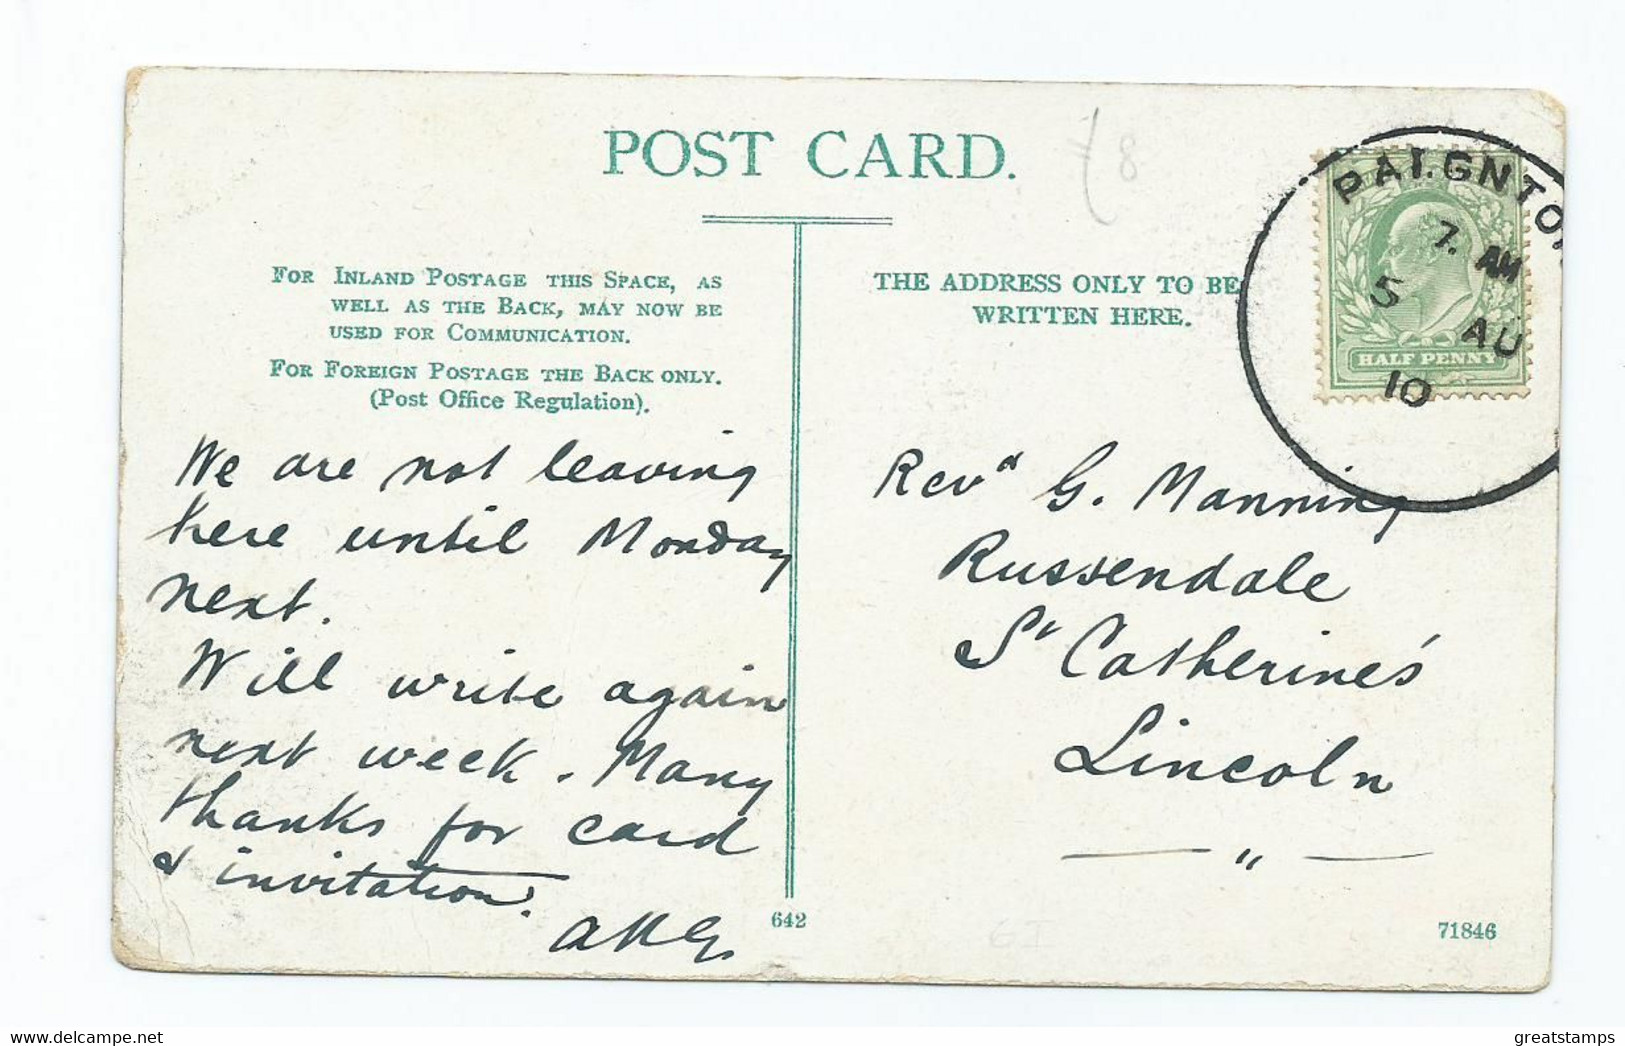 POST CARD.
£8
FOR INLAND POSTAGE THIS SPACE, AS
WELL AS THE BACK, MAY NOW BE
USED FOR COMMUNICATION.
FOR FOREIGN POSTAGE THE BACK ONLY.
(Post Office Regulation).
THE ADDRESS ONLY TO BE
WRITTEN HERE.
PAIGNTON
7. AM
5 AU
10
HALF PENNY
We are not leaving
here until Monday
next.
Will write again
next week. Many
thanks for card
& invitation.
Revd G. Manning
Russendale
St Catherine's
Lincoln
642
71846
greatstamps